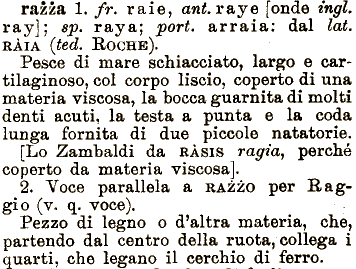 rażża 1. fr. raie, ant. raye [onde ingl.
ray]; sp. raya; port. arraia: dal lat.
RÀIA (ted. ROCHE).
Pesce di mare schiacciato, largo e car-
tilaginoso, col corpo liscio, coperto di una
materia viscosa, la bocca guarnita di molti
denti acuti, la testa a punta e la coda
lunga fornita di due piccole natatorie.
[Lo Zambaldi da RÀSIS ragia, perché
coperto da materia viscosa].
2. Voce parallela a RAŻŻO per Rag-
gio (v. q. voce).
Pezzo di legno o d'altra materia, che,
partendo dal centro della ruota, collega i
quarti, che legano il cerchio di ferro.